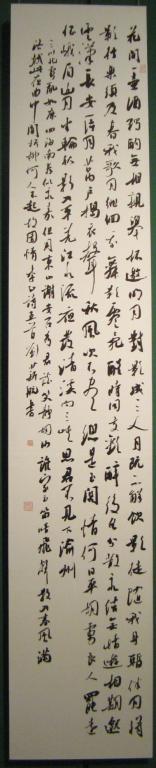 花間一壺酒獨酌無相親舉杯邀明月對影成三人月既不解飲影徒隨我身暫伴月將
影行樂須及春我歌月徘徊我舞影零亂醒時同交歡醉後各分散永結無情遊相期邈
雲漢長安一片月萬戶搗衣聲秋風吹不盡總是玉關情何日平胡虜良人罷遠
征峨眉山月半輪秋影入平羌江水流夜發清溪向三峽思君不見下渝州
三川北虜亂如麻四海南奔似永嘉但用東山謝安石為君談笑靜胡沙誰家玉笛暗飛聲散入春風滿
洛城此夜曲中聞折柳何人不起故園情李白詩五首劉新書